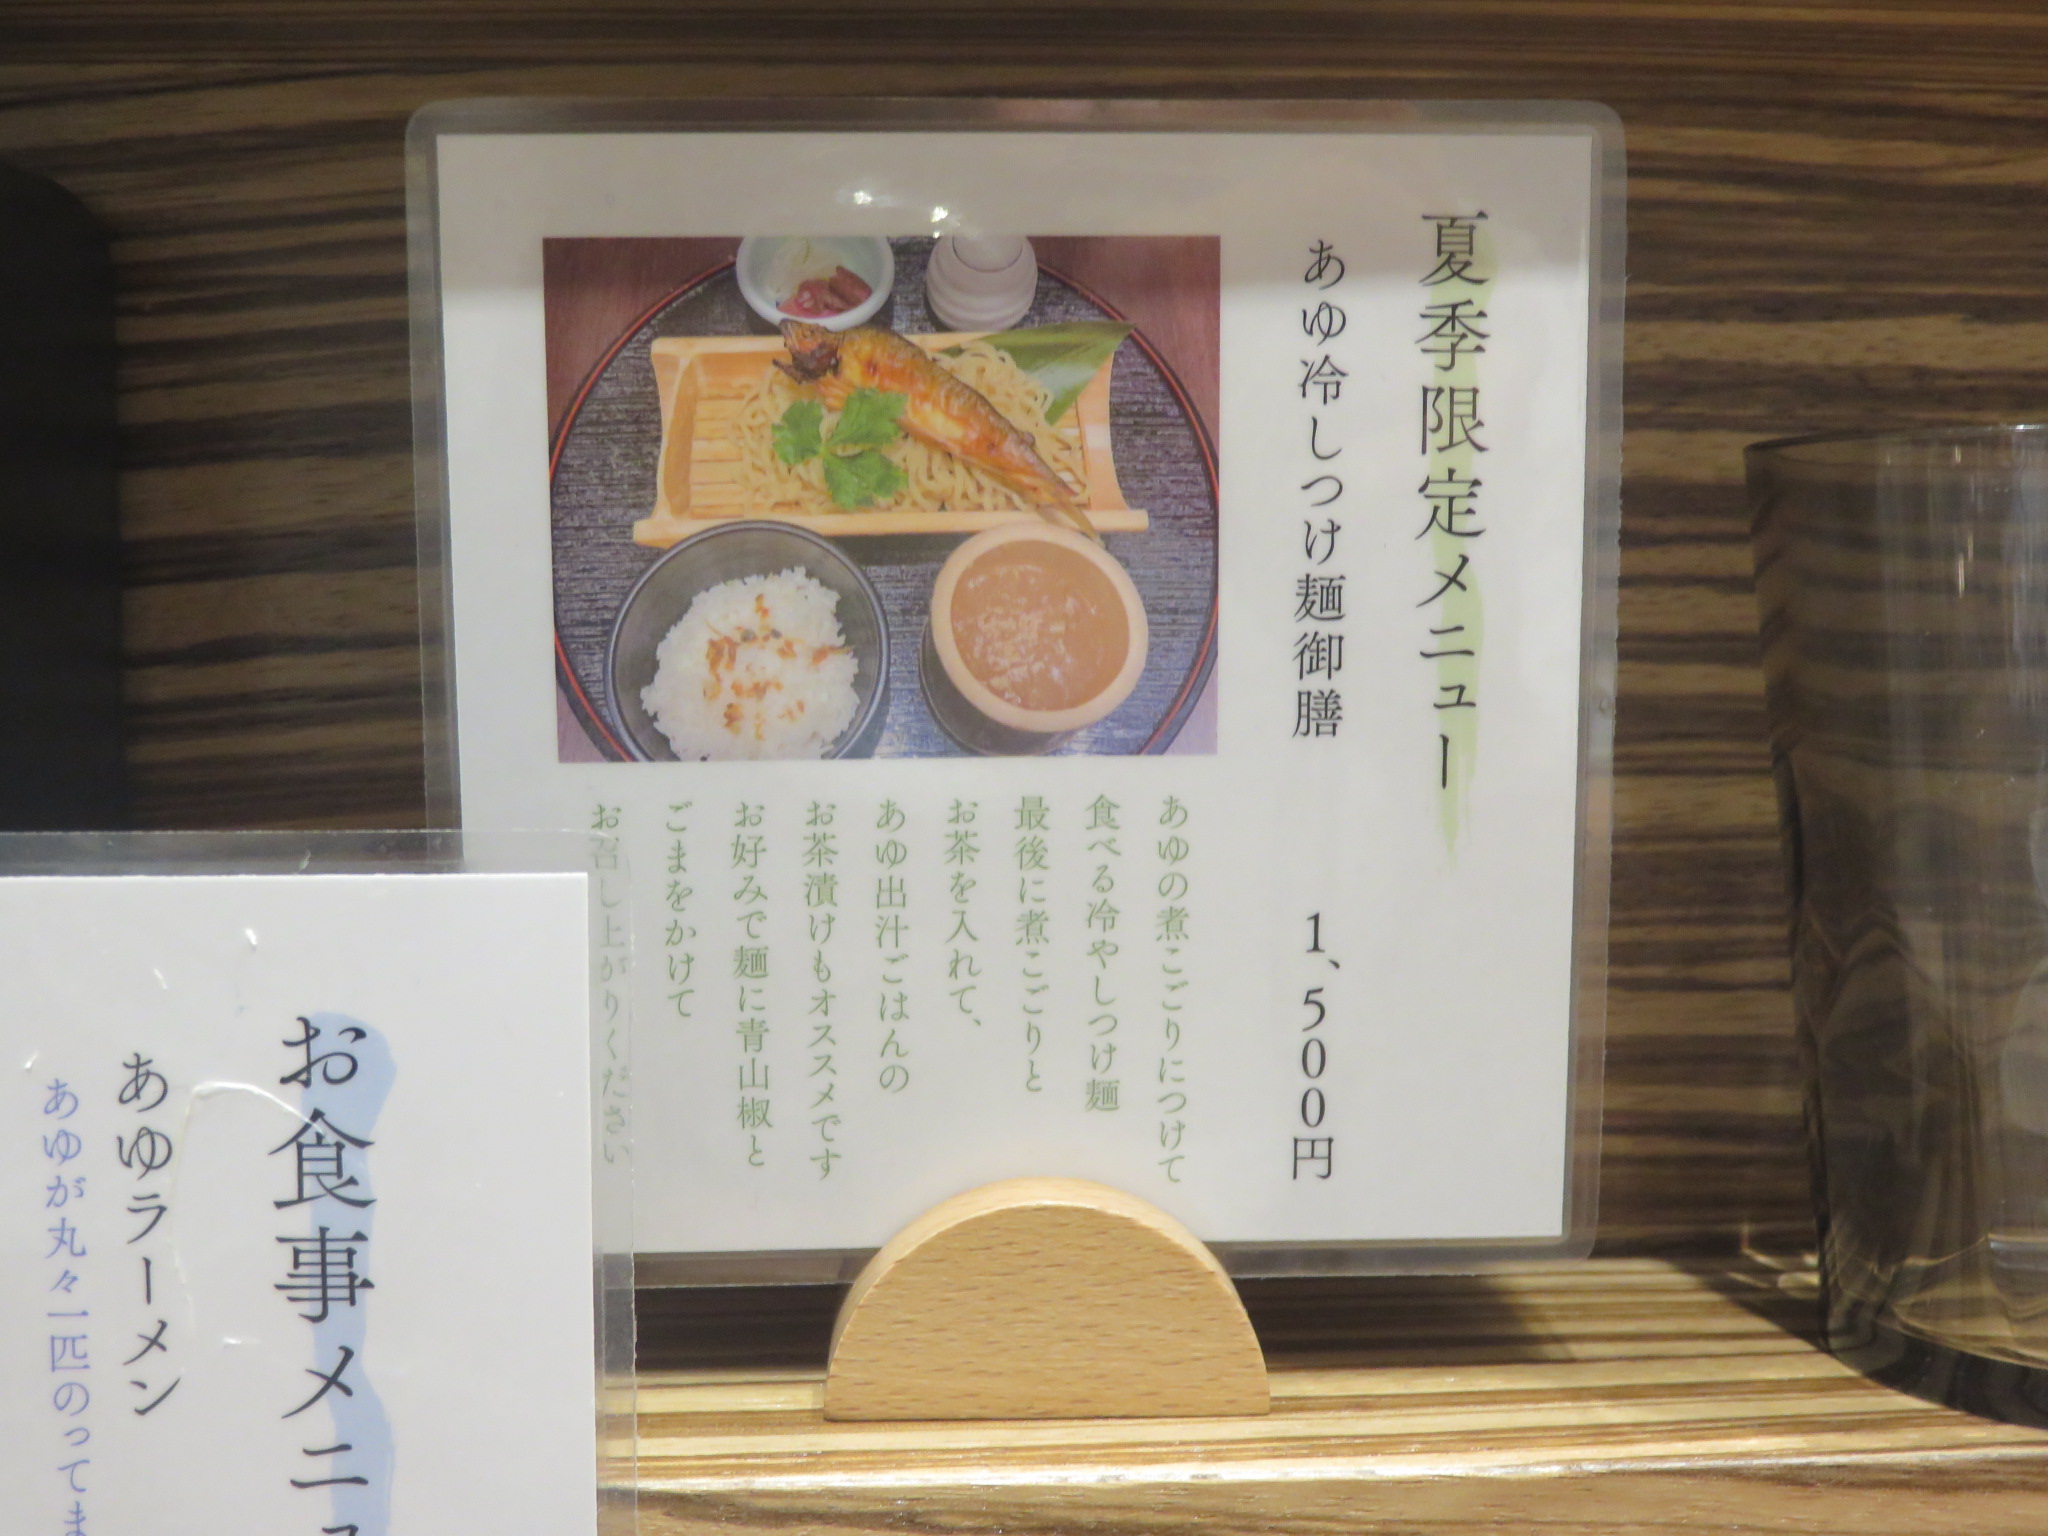 夏季限定メニュー
あゆ冷しつけ麺御膳 1、500円
あゆの煮こごりにつけて
食べる冷やしつけ麺
最後に煮こごりと
お茶を入れて、
あゆ出汁ごはんの
お茶漬けもオススメです
お好みで麺に青山椒と
ごまをかけて
お召し上がりください
お食事メニュ
あゆラーメン
あゆが丸々一匹のってま